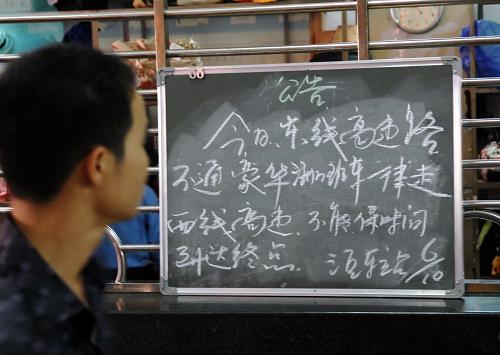 公告
今日东线高速路
不通豪华湖班车一律走
西线高速.不能保时间
到达终点. 汽车站 6/10